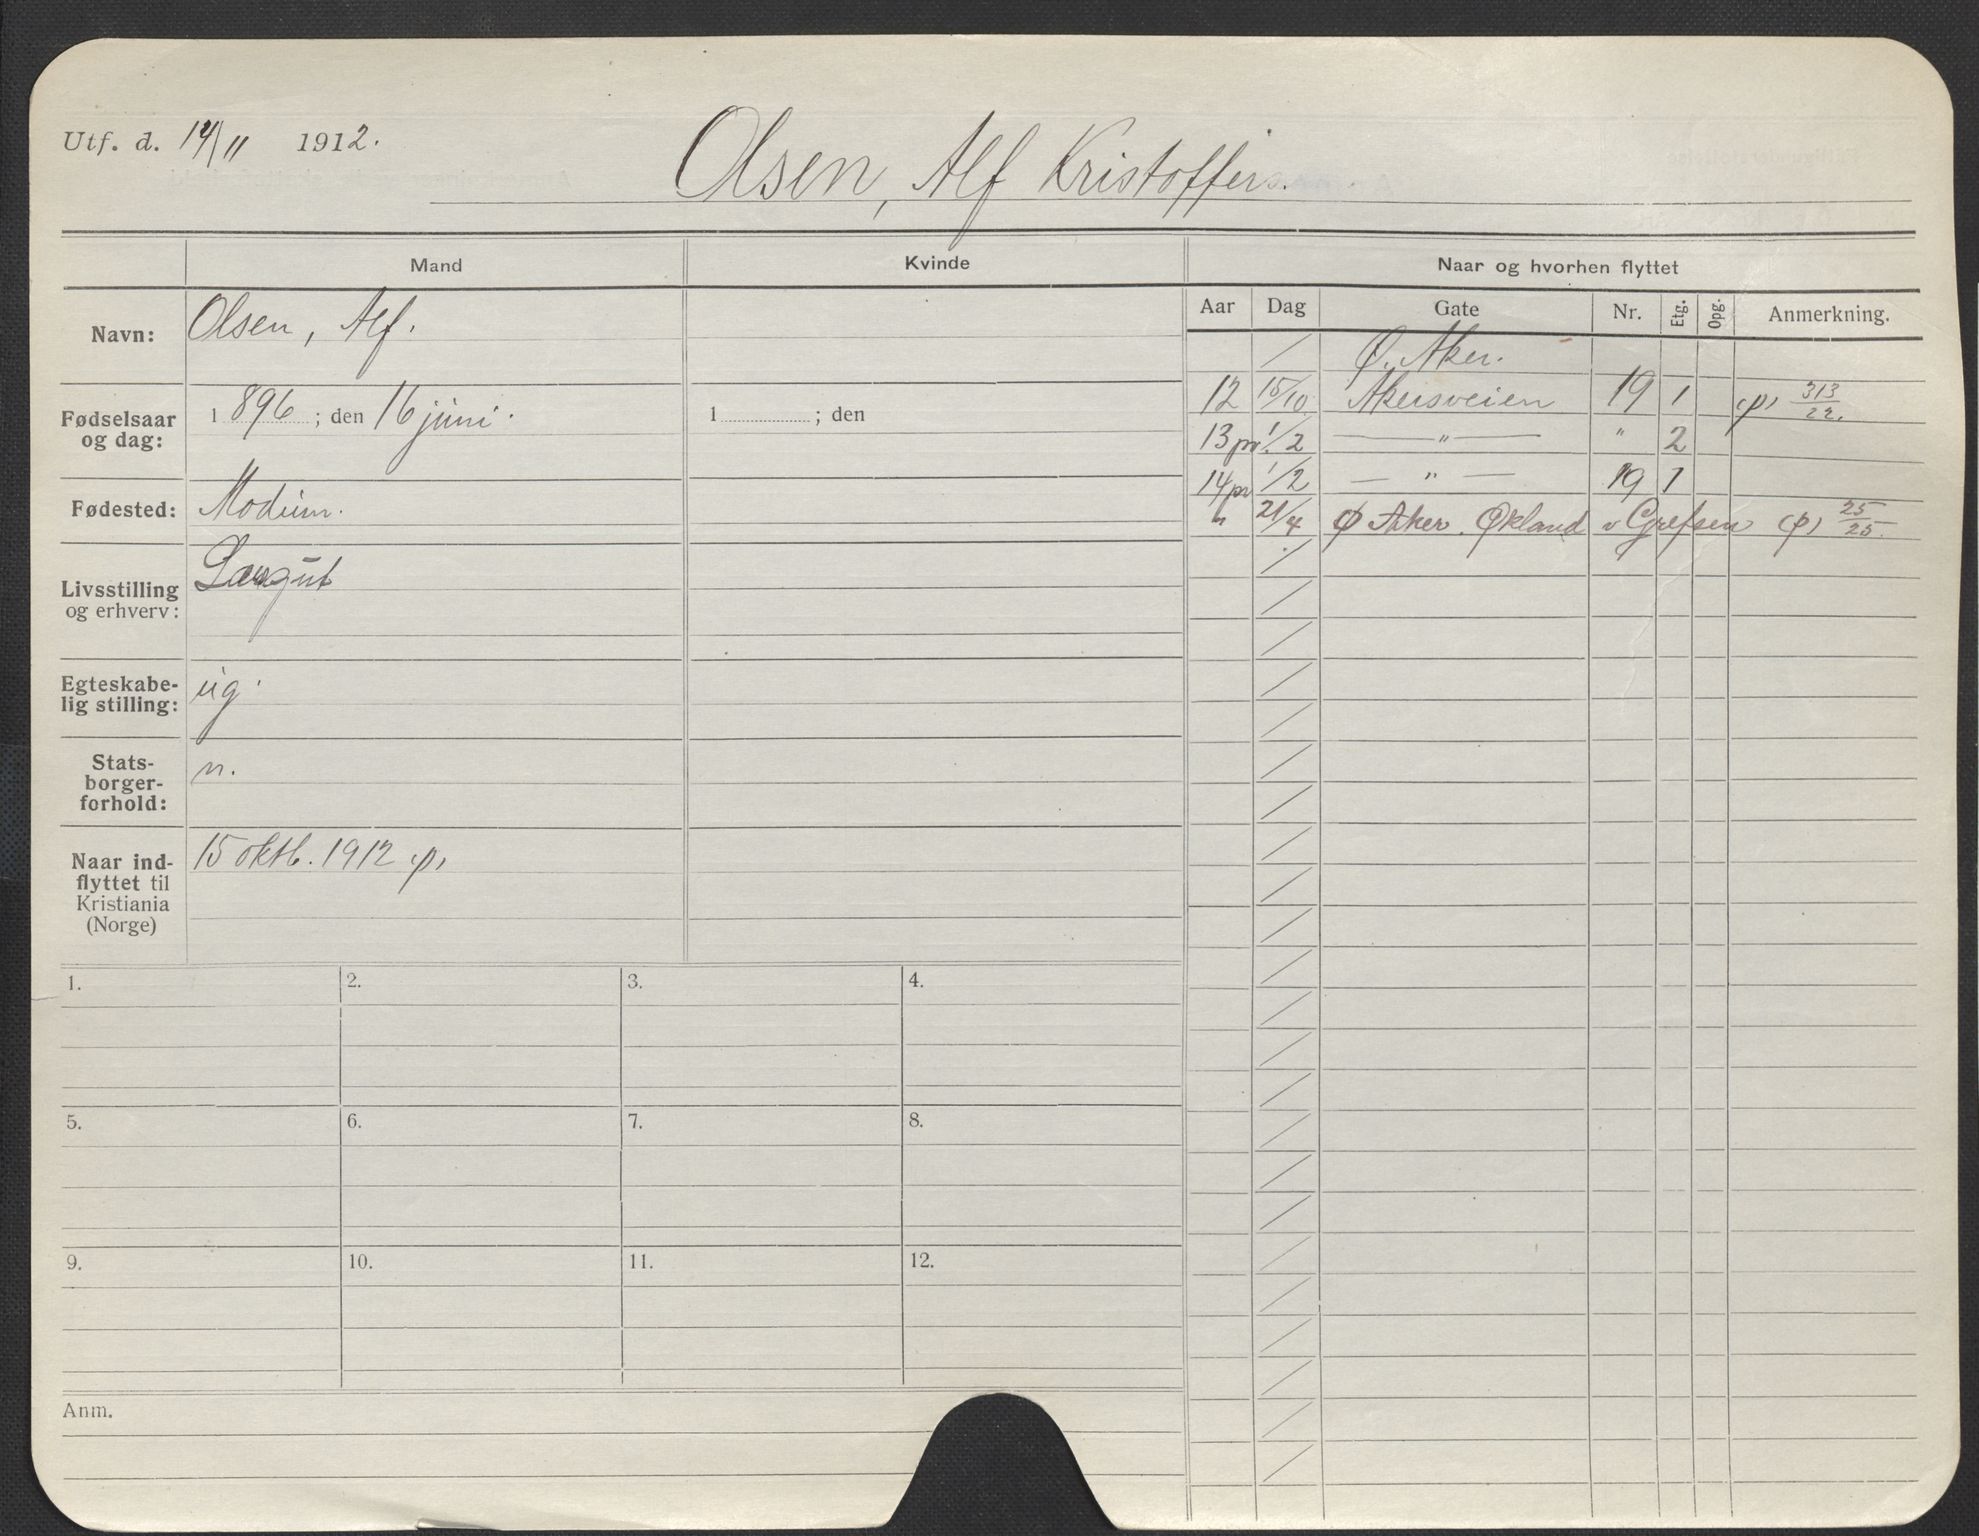 Utf. d. 14/11 1912.
Olsen, Alf Kristoffers.
Mand Kvinde Naar og hvorhen flyttet
Aar Dag Gate Nr. Etg. Opg. Anmerkning.
Navn: Olsen, Alf.
Fødselsaar og dag: 1896; den 16 juni. 1 ; den
Fødested: Modum.
Livsstilling og erhverv:
Egteskabe-
lig stilling: ug.
Stats-
borger-
forhold: n.
Naar ind-
flyttet til
Kristiania
(Norge) 15 oktb. 1912 (p)
Ø. Aker.
12 15/10 Akersveien 19 1 (p) 313/22.
13 pr 1/2 — " — " 2
14 pr 1/2 — " — 19 1
" 21/4 Ø Aker. Økland v Grefsen (p) 25/25.
1. 2. 3. 4.
5. 6. 7. 8.
9. 10. 11. 12.
Anm.